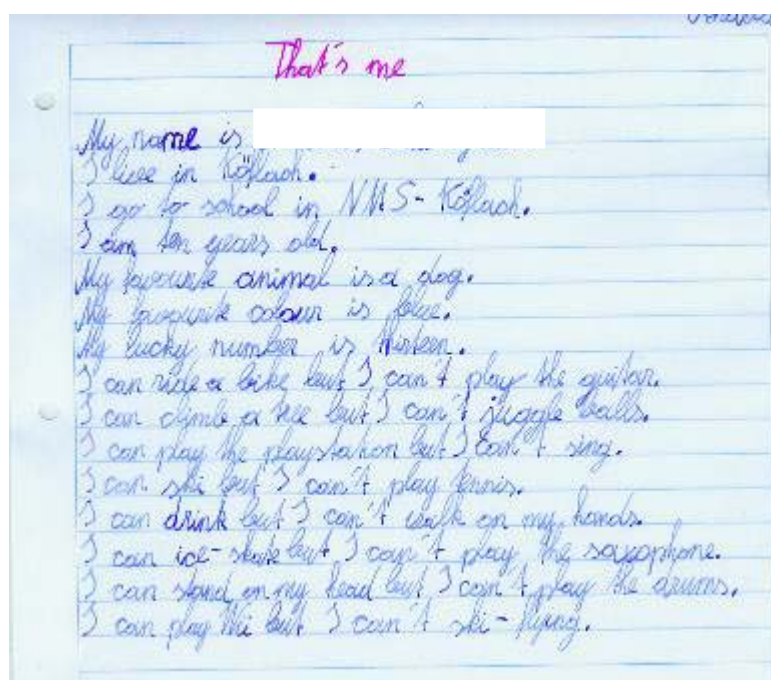 That's me
My name is
I live in Köflach.
I go to school in NMS-Köflach.
I am ten years old.
My favourite animal is a dog.
My favourite colour is blue.
My lucky number is thirteen.
I can ride a bike but I can't play the guitar.
I can climb a tree but I can't juggle balls.
I can play the playstation but I can't sing.
I can ski but I can't play tennis.
I can drink but I can't walk on my hands.
I can ice-skate but I can't play the saxophone.
I can stand on my head but I can't play the drums.
I can play Wii but I can't ski-flying.